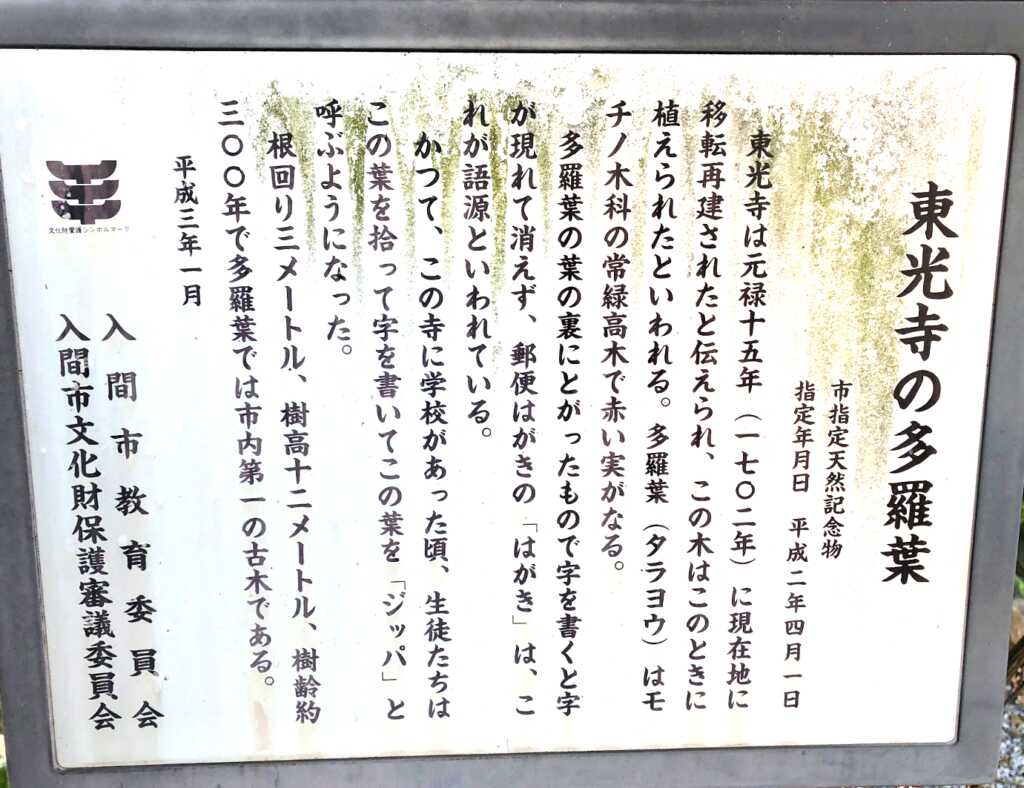 東光寺の多羅葉
市指定天然記念物
指定年月日 平成二年四月一日
東光寺は元禄十五年（一七〇二年）に現在地に
移転再建されたと伝えられ、この木はこのときに
植えられたといわれる。多羅葉（タラヨウ）はモ
チノ木科の常緑高木で赤い実がなる。
多羅葉の葉の裏にとがったもので字を書くと字
が現れて消えず、郵便はがきの「はがき」は、こ
れが語源といわれている。
かつて、この寺に学校があった頃、生徒たちは
この葉を拾って字を書いてこの葉を「ジッパ」と
呼ぶようになった。
根回り三メートル、樹高十二メートル、樹齢約
三〇〇年で多羅葉では市内第一の古木である。
平成三年一月
入間市教育委員会
入間市文化財保護審議委員会
文化財愛護シンボルマーク